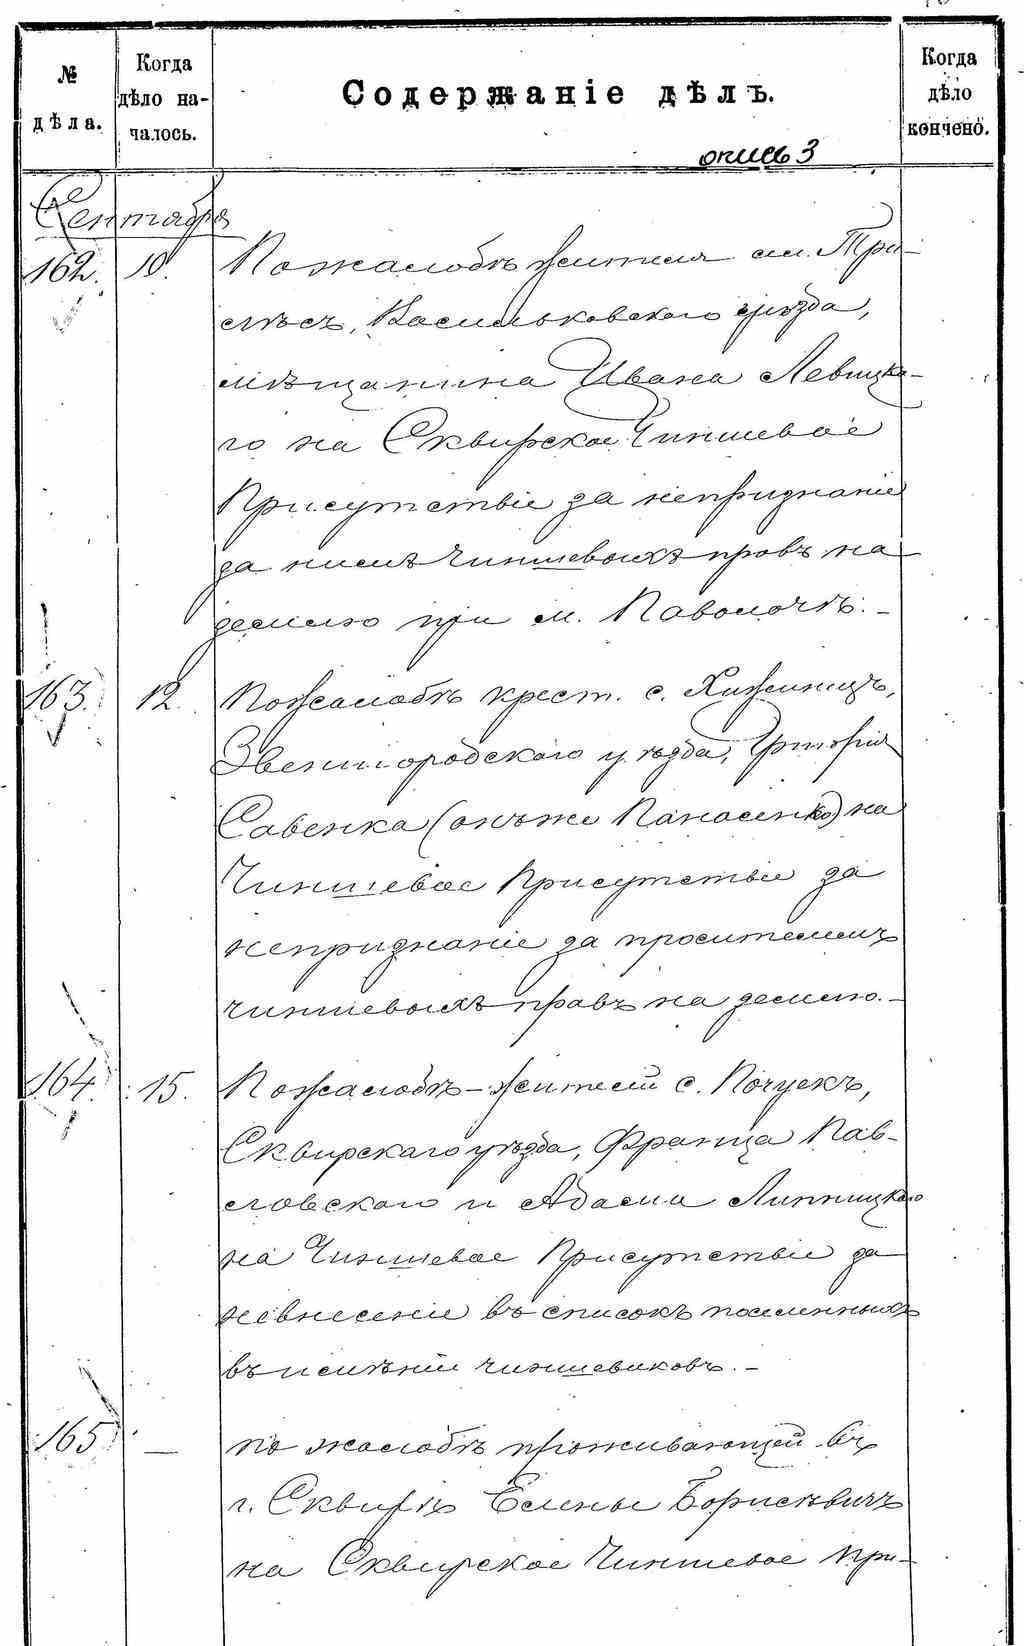 № дѣла.
Когда дѣло началось.
Содержаніе дѣлъ.
Когда дѣло кончено.
опись 3
Сентября
162. 10. По жалобѣ жителя м. Три-
лѣсъ, Васильковскаго уѣзда,
мѣщанина Ивана Левицка-
го на Сквирское Чиншевое
Присутствіе за непризнаніе
за нимъ чиншевыхъ правъ на
землю при м. Паволочѣ. –
163. 12. По жалобѣ крест. с. Хижинецъ,
Звенигородскаго уѣзда,
Савенка (онъ же Панасенко) на
Чиншевое Присутствіе за
непризнаніе за просителемъ
чиншевыхъ правъ на землю. –
164. 15. По жалобѣ – жителей с. Почуекъ,
Сквирскаго уѣзда, Франца Пав-
ловскаго и Адама Липницкаго
на Чиншевое Присутствіе за
невнесеніе въ списокъ поименныхъ
въ имѣніи чиншевиковъ. –
165 — по жалобѣ проживающей въ
г. Сквирѣ Елены Борисевичъ
на Сквирское Чиншевое При-